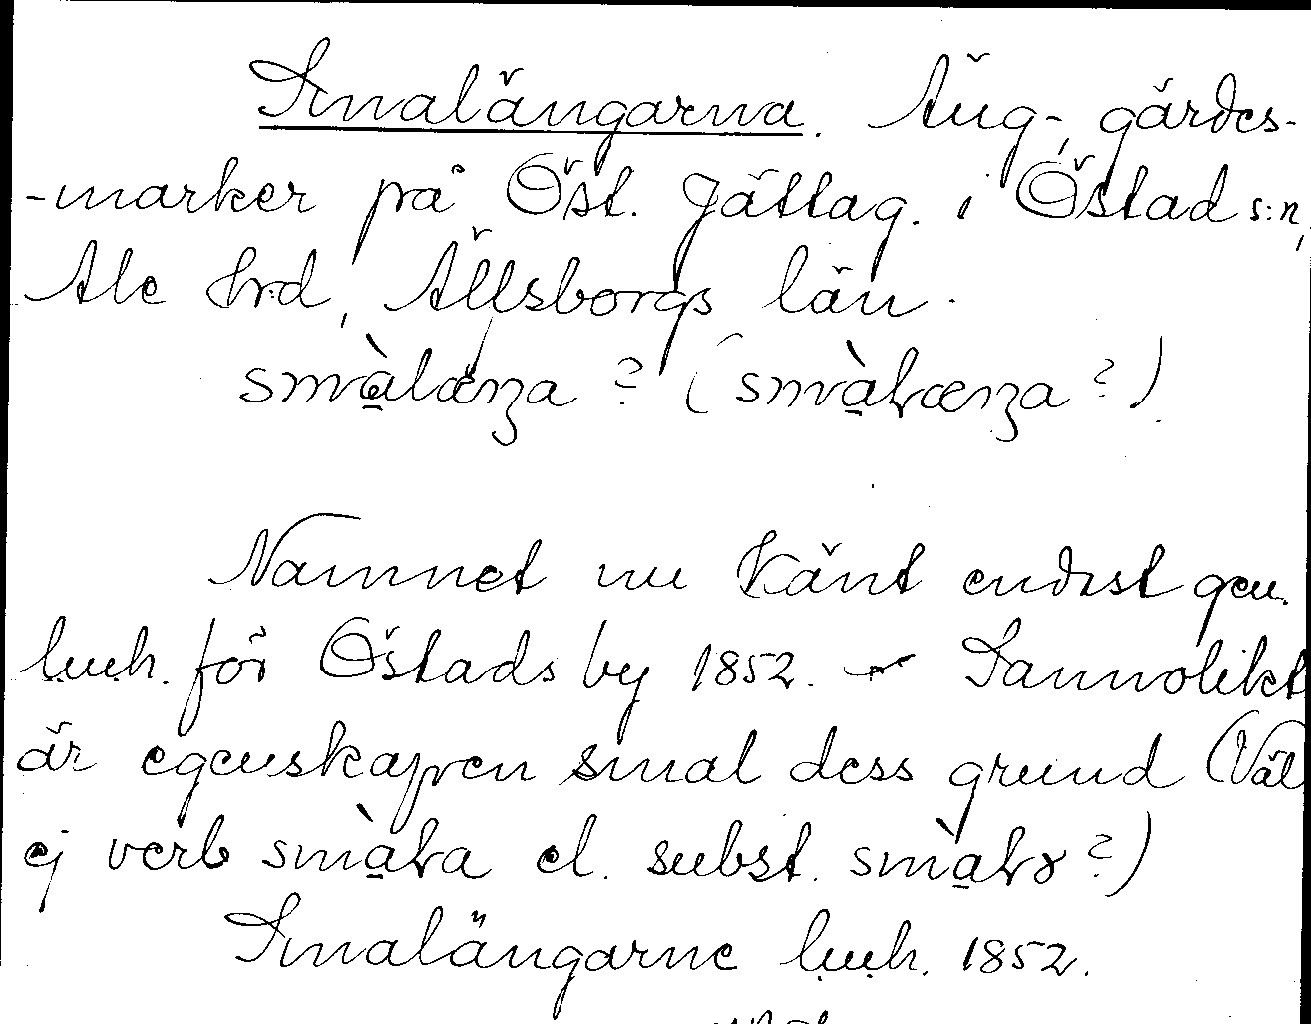 Smalängarna. Äng-, gärdes-
-marker på Öst. Jättag. i Östad s:n,
Ale hrd, Älfsborgs län.
smàlænga ? (smàlænga ?)
Namnet nu känt endast gen.
l.m.h. för Östads by 1852. - Sannolikt
är egenskapen smal dess grund (Väl
ej verb smàla el. subst. smàlə ?)
Smalängarne l.m.h. 1852.